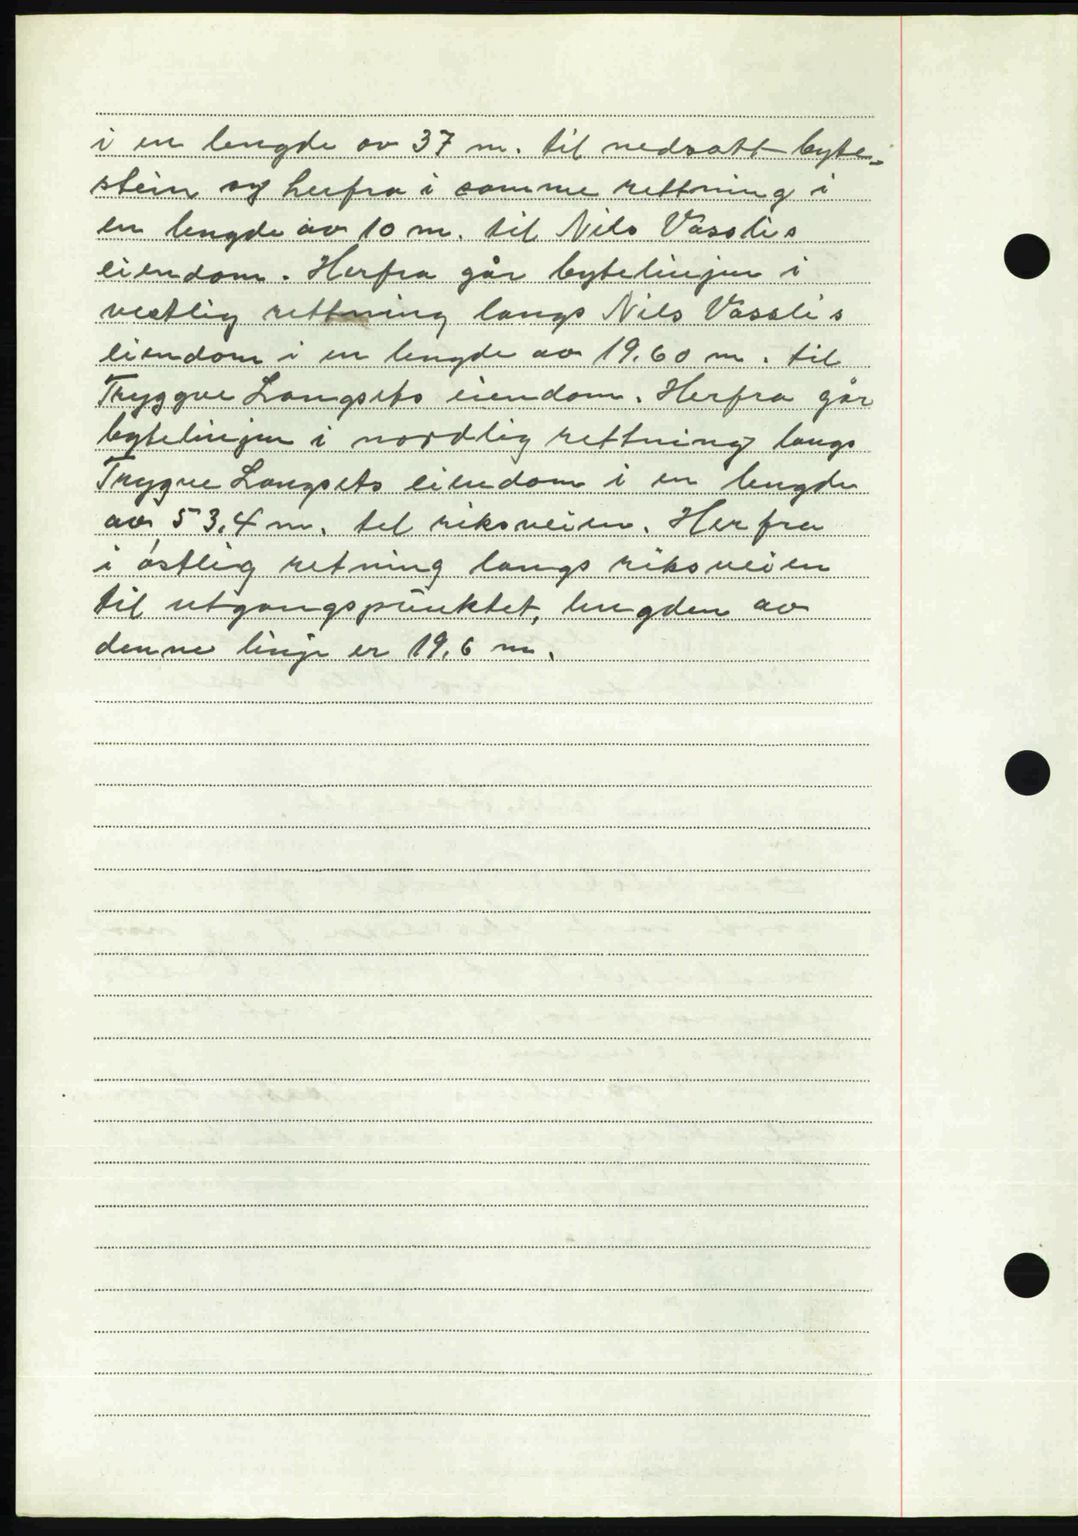 i en lengde av 37 m. til nedsatt byte-
stein og herfra i samme rettning i
en lengde av 10 m. til Nils Vasslis
eiendom. Herfra går bytelinjen i
vestlig rettning langs Nils Vasslis
eiendom i en lengde av 19.60 m. til
Tryggve Langsets eiendom. Herfra går
bytelinjen i nordlig rettning langs
Trygve Langsets eiendom i en lengde
av 53.4 m. til riksveien. Herfra
i østlig retning langs riksveien
til utgangspunktet, lengden av
denne linje er 19.6 m.